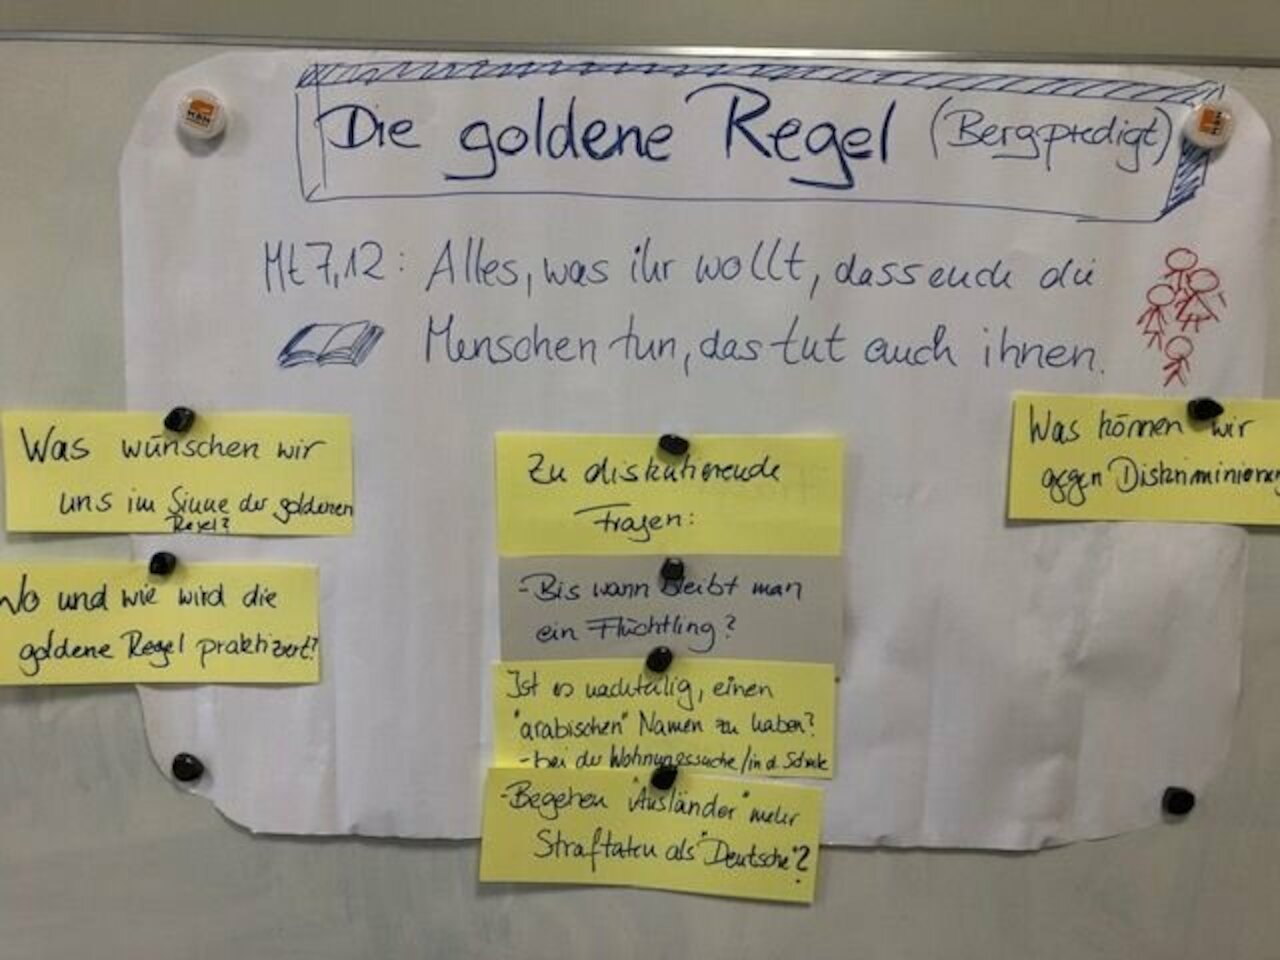 Die goldene Regel (Bergpredigt)
Mt 7,12: Alles, was ihr wollt, dass euch die
Menschen tun, das tut auch ihnen.
Was wünschen wir
uns im Sinne der goldenen
Regel?
Wo und wie wird die
goldene Regel praktiziert?
Zu diskutierende
Fragen:
-Bis wann bleibt man
ein Flüchtling?
Ist es nachteilig, einen
"arabischen" Namen zu haben?
- bei der Wohnungssuche/in d. Schule
-Begehen "Ausländer" mehr
Straftaten als "Deutsche"?
Was können wir
gegen Diskriminierung